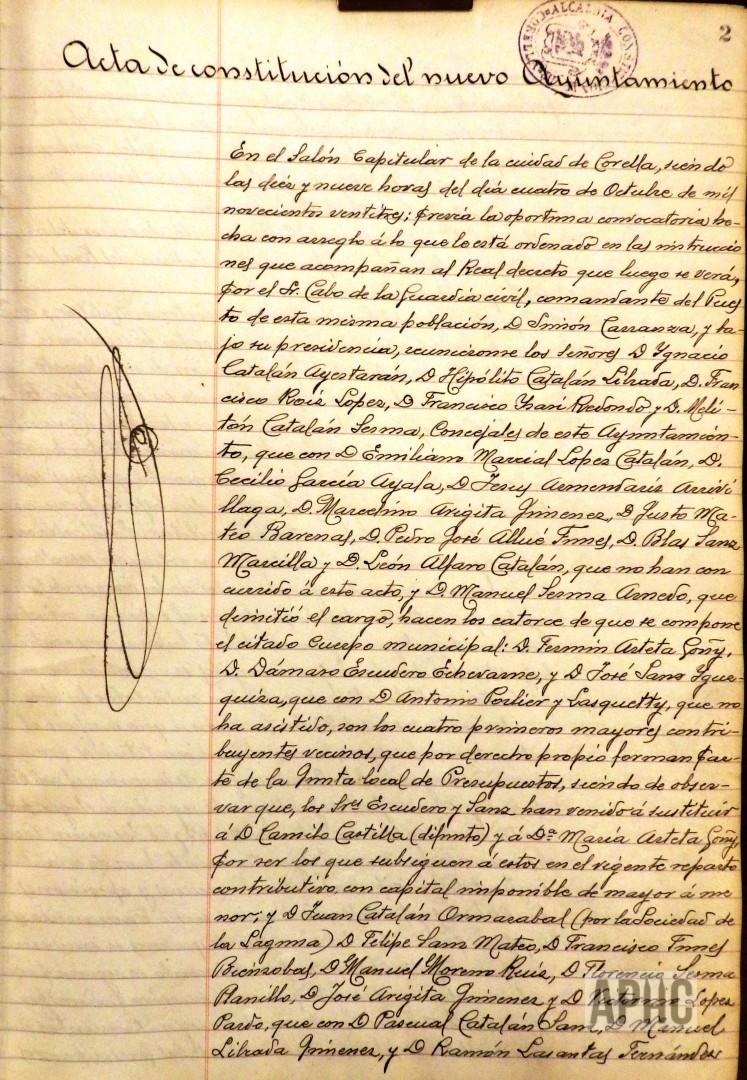 2
ALCALDIA CONSTITUCIONAL
Acta de constitución del nuevo Ayuntamiento
En el Salón Capitular de la ciudad de Corella, siendo
las diez y nueve horas del día cuatro de Octubre de mil
novecientos ventitres; previa la oportuna convocatoria he-
cha con arreglo á lo que le está ordenado en las instruccio
nes que acompañan al Real decreto que luego se verá,
por el Sr. Cabo de la Guardia civil, comandante del Pues
to de esta misma población, D Simón Carranza, y ba-
jo su presidencia, reuniéronse los señores D Ygnacio
Catalán Ayestarán, D Hipólito Catalán Librada, D. Fran
cisco Roiz Lopez, D Francisco Redondo y D. Meli-
tón Catalán Sesma, Concejales de este Ayuntamien-
to, que con D Emiliano Marcial Lopez Catalán, D.
Cecilio García Ayala, D Jesus Armendariz Arrivi
llaga, D. Marcelino Arigita Gimenez, D Justo Ma-
teo Barenas, D. Pedro José Allué Ynnes, D. Blas Sanz
Marcilla y D. León Alfaro Catalán, que no han con
currido á este acto, y D. Manuel Sesma Arnedo, que
dimitió el cargo, hacen los catorce de que se compone
el citado Cuerpo municipal: D. Fermin Arteta Goñy,
D. Dámaso Escudero Echevarne, y D José Sanz Ygue-
quiza, que con D Antonio Porlier y Lasquetty, que no
ha asistido, son los cuatro primeros mayores contri-
buyentes vecinos, que por derecho propio forman par-
te de la Junta local de Presupuestos, siendo de obser-
var que, los Srs Escudero y Sanz han venido á sustituir
á D Camilo Castilla (difunto) y á Dª María Arteta Goñy,
por ser los que subsiguen á estos en el vigente reparto
contributivo con capital imponible de mayor á me
nor; y D Juan Catalán Ormazabal (por la Sociedad de
la Laguna) D Felipe Sanz Mateo, D Francisco Ynnes
Bienzobas, D Manuel Moreno Ruiz, D Florencio Sesma
Planillo, D José Arigita Gimenez y D Lopez
Pardo, que con D Pascual Catalán Sanz, D Manuel
Librada Gimenez, y D Ramón Lasantas Fernández
APUC